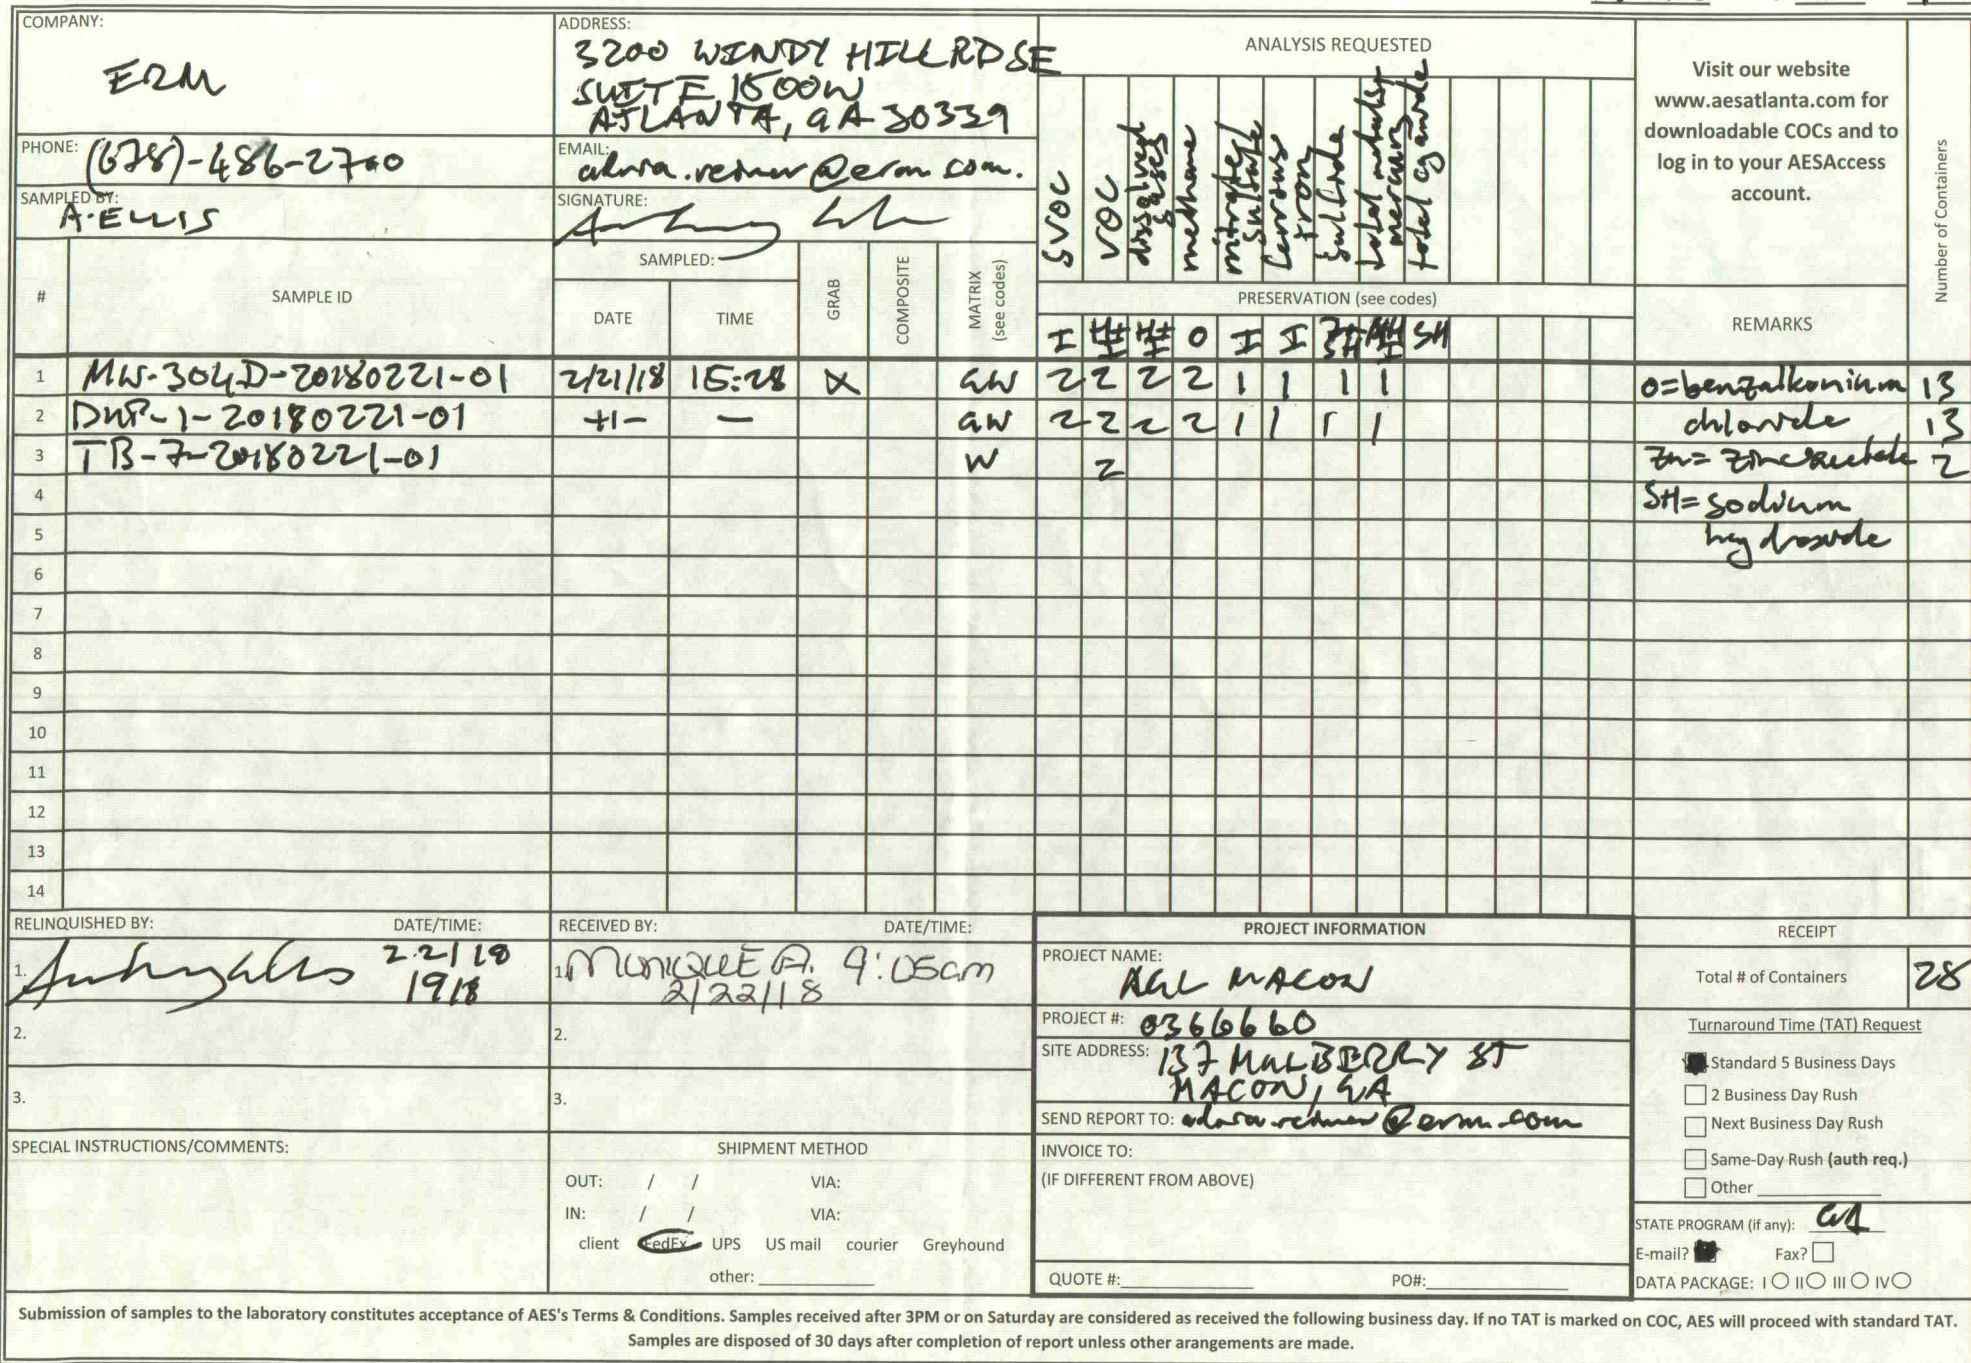 COMPANY:
ERM
ADDRESS:
3200 WINDY HILL RD SE
SUITE 1500W
ATLANTA, GA 30339
PHONE: (678)-486-2700
EMAIL:
@erm.com.
SAMPLED BY:
A. ELLIS
SIGNATURE:
ANALYSIS REQUESTED
SVOC
VOC
dissolved gases
methane
nitrate/ sulfate
ferrous iron
sulfide
total metals + mercury
total cyanide
Visit our website
www.aesatlanta.com for
downloadable COCs and to
log in to your AESAccess
account.
Number of Containers
#
SAMPLE ID
SAMPLED:
DATE
TIME
GRAB
COMPOSITE
MATRIX
(see codes)
PRESERVATION (see codes)
REMARKS
I O I I SH
1 MW-304D-20180221-01 2/21/18 15:28 X GW 2 2 2 2 1 1 1 1 O=benzalkonium 13
2 DUP-1-20180221-01 — GW 2 2 2 2 1 1 1 1 chloride 13
3 TB-7-20180221-01 W 2 Zn= zinc acetate 2
4 SH= sodium
5 hydroxide
6
7
8
9
10
11
12
13
14
RELINQUISHED BY: DATE/TIME:
1. 2.21 18
1918
2.
3.
RECEIVED BY: DATE/TIME:
1. MONIQUE A. 9:05am
2/22/18
2.
3.
PROJECT INFORMATION
PROJECT NAME:
AGL MACON
PROJECT #: 0366660
SITE ADDRESS: 137 MULBERRY ST
MACON, GA
SEND REPORT TO: @erm.com
INVOICE TO:
(IF DIFFERENT FROM ABOVE)
QUOTE #: PO#:
RECEIPT
Total # of Containers 28
Turnaround Time (TAT) Request
Standard 5 Business Days
2 Business Day Rush
Next Business Day Rush
Same-Day Rush (auth req.)
Other
STATE PROGRAM (if any): GA
E-mail? Fax?
DATA PACKAGE: I II III IV
SPECIAL INSTRUCTIONS/COMMENTS:
SHIPMENT METHOD
OUT: / / VIA:
IN: / / VIA:
client FedEx UPS US mail courier Greyhound
other:
Submission of samples to the laboratory constitutes acceptance of AES's Terms & Conditions. Samples received after 3PM or on Saturday are considered as received the following business day. If no TAT is marked on COC, AES will proceed with standard TAT.
Samples are disposed of 30 days after completion of report unless other arangements are made.